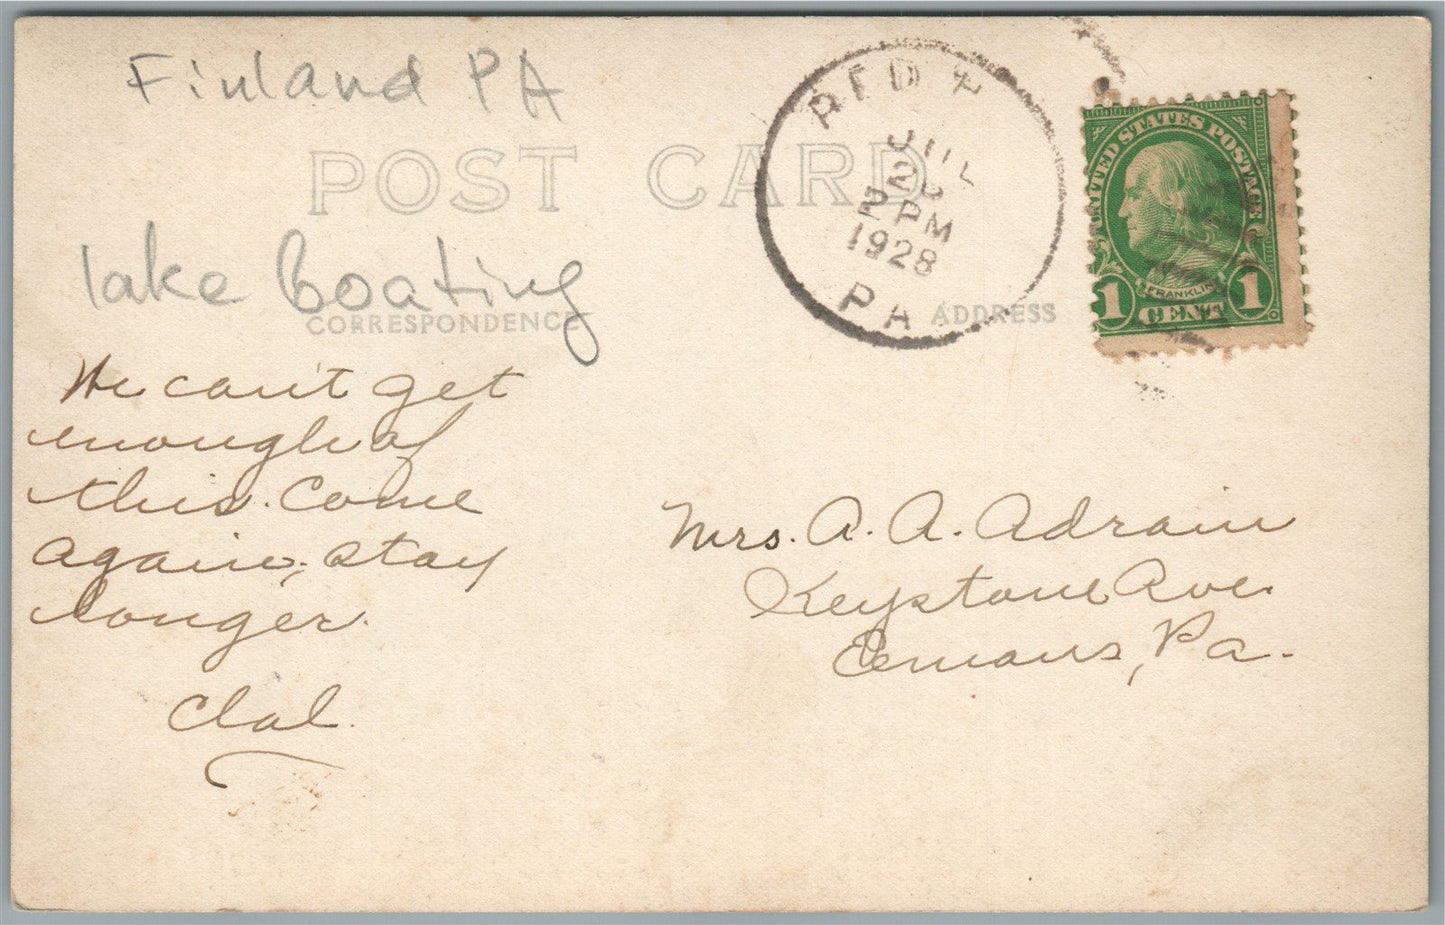 Finland PA
POST CARD
lake boating
CORRESPONDENCE
ADDRESS
We can't get
enough of
this. Come
again, stay
longer.
Mrs. A. A. Adrain
Keystone Ave.
Emaus, Pa.
JUL
2 PM
1928
PA.
UNITED STATES POSTAGE
FRANKLIN
1 CENT 1